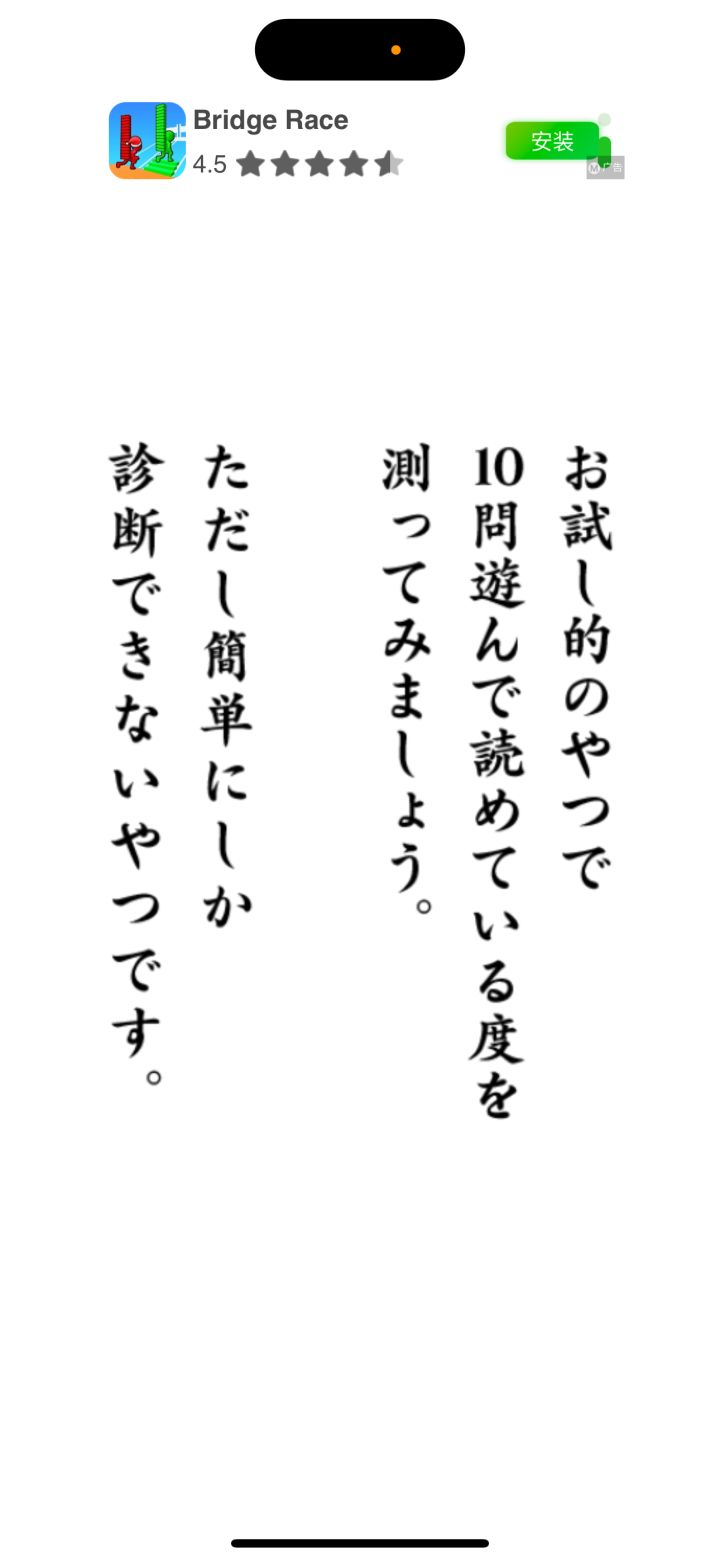 Bridge Race
4.5
安装
广告
お試し的のやつで
10問遊んで読めている度を
測ってみましょう。
ただし簡単にしか
診断できないやつです。